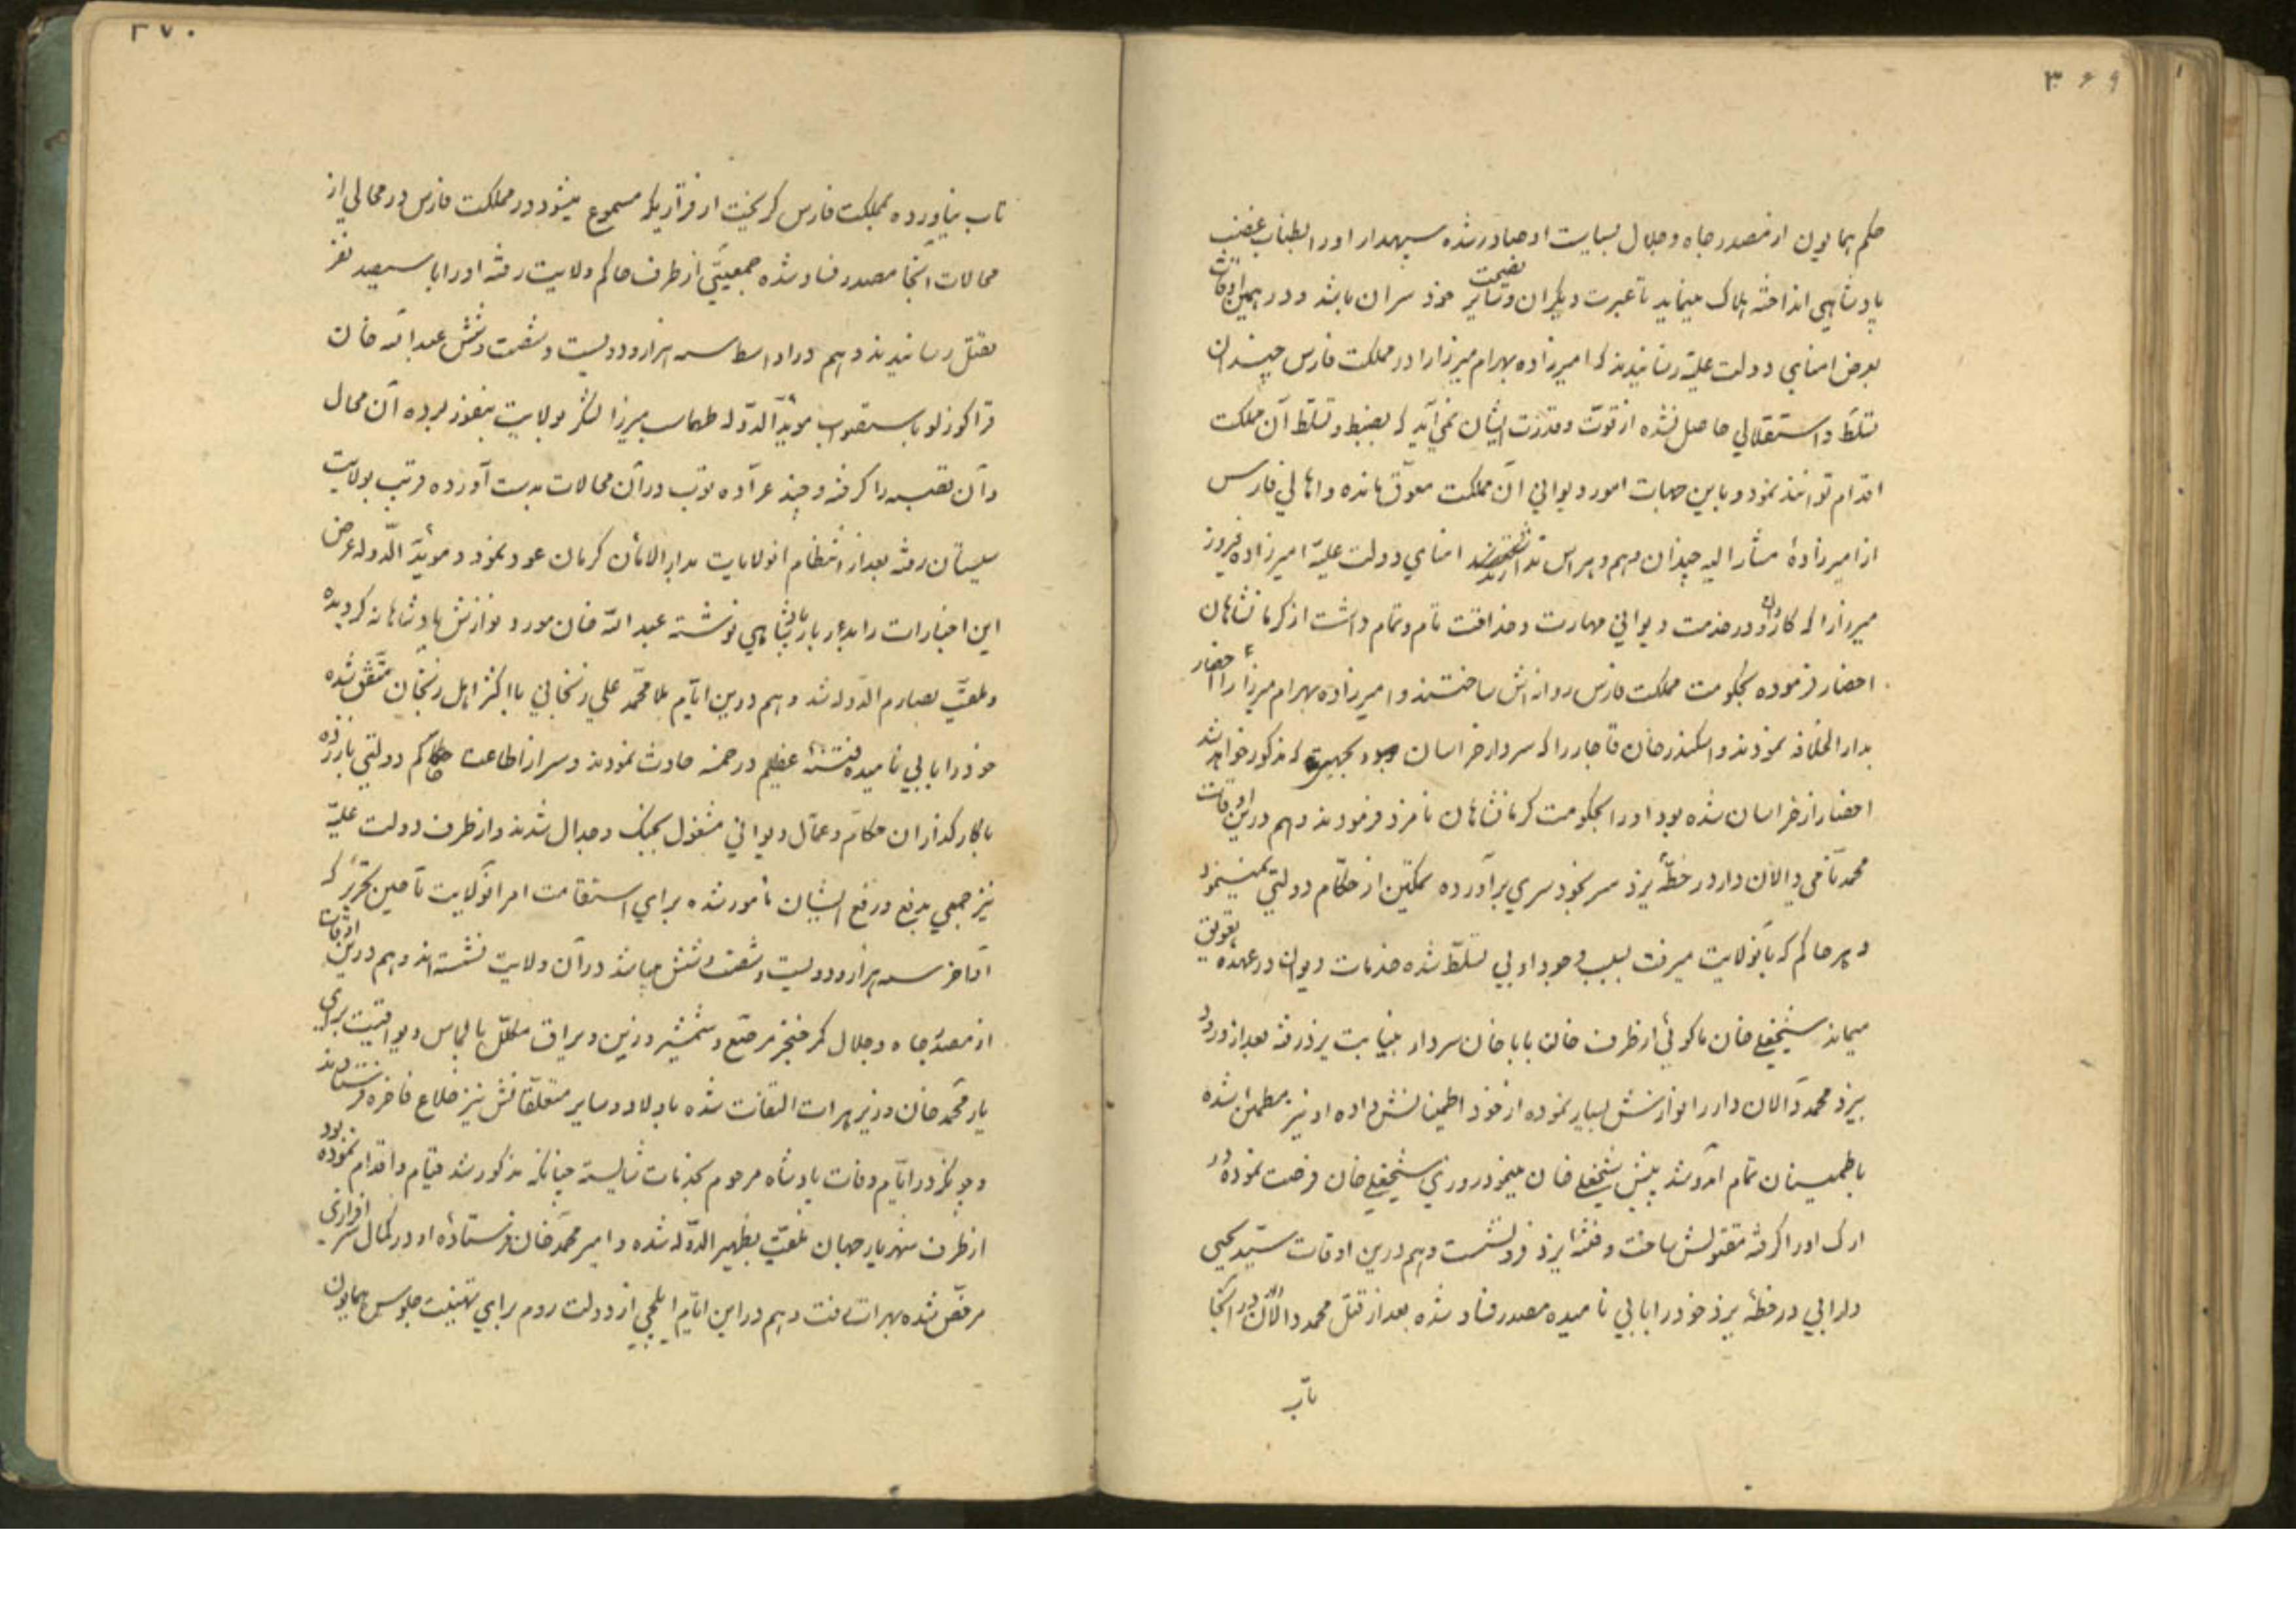 ۳۶۹
حکم همایون از مصدر جاه و جلال بسیاست او صادر شده سپهدار او را بطناب غضب
پادشاهی انداخته هلاک مینماید تا عبرت دیگران و نصیحت سایر خود سران باشد و در همین اوقات
بعرض امنای دولت علیّه رسانیدند که امیرزاده بهرام میرزا را در مملکت فارس چندان
تسلّط و استقلالی حاصل نشده از قوّت و قدرت ایشان نمی‌آید که بضبط و تسلّط آن مملکت
اقدام توانند نمود و باین جهات امور دیوانی آن مملکت معوّق مانده و اهالی فارس
از امیرزادهٔ مشار الیه چندان وهم و هراس ندارند امنای دولت علیّه امیرزاده فیروز
میرزا را که کاردان و در خدمت دیوانی مهارت و حذاقت تام و تمام داشت از کرمانشاهان
احضار فرموده بحکومت مملکت فارس روانه‌اش ساختند و امیرزاده بهرام میرزا را احضار
بدار الخلافه نمودند و اسکندر خان قاجار را که سردار خراسان بود بجهتی که مذکور خواهد شد
احضار از خراسان شده بود او را بحکومت کرمانشاهان نامزد فرمودند و هم درین اوقات
محمد نامی والان دار در خطّهٔ یزد سر بخود سری برآورده تمکین از حکّام دولتی نمینمود
و هر حاکم که بآنولایت میرفت بسبب وجود او بی تسلّط شده خدمات دیوان در عهده تعویق
میماند شیخعلی خان ماکوئی از طرف خان بابا خان سردار بنیابت یزد رفته بعد از ورود
بیزد محمد والان دار را نوازش بسیار نموده از خود اطمینانش داده او نیز مطمئن شده
باطمینان تمام آمد و شد پیش شیخعلی خان مینمود روزی شیخعلی خان فرصت نموده در
ارک او را گرفته مقتولش ساخت و فتنهٔ یزد فرو نشست و هم درین اوقات سیّد یحیی
دارابی در خطّهٔ یزد خود را بابی نامیده مصدر فساد شده بعد از قتل محمد والان دار در آنجا
تاب
۳۷۰
تاب نیاورده بمملکت فارس گریخت از قراریکه مسموع میشود در مملکت فارس در محالی از
محالات آنجا مصدر فساد شده جمعیّتی از طرف حاکم ولایت رفته او را با سیصد نفر
بقتل رسانیدند و هم در اواسط سنه هزار و دویست و شصت و شش عبد الله خان
قراگوزلو باستصواب مویّد الدّوله طهماسب میرزا لشکر بولایت بمفوز برده آن محال
و آن قصبه را گرفته و چند عرّاده توپ در آن محالات بدست آورده قریب بولایت
سیستان رفته بعد از انتظام آنولایات بدار الامان کرمان عود نمود و مویّد الدّوله عرض
این اخبارات را بدربار پادشاهی نوشته عبد الله خان مورد نوازش پادشاهانه گردیده
و ملقّب بصارم الدّوله شد و هم درین ایّام ملا محمّد علی زنجانی با اکثر اهل زنجان متّفق شده
خود را بابی نامیده فتنهٔ عظیم در خمسه حادث نمودند و سر از اطاعت حکام دولتی باز زده
با کارگذاران حکّام و عمّال دیوانی مشغول بجنگ و جدال شدند و از طرف دولت علیّه
نیز جمعی بدفع و رفع ایشان مأمور شده برای استقامت امر آنولایت تا حین تحریر که
اواخر سنه هزار و دویست و شصت و شش میباشد در آن ولایت نشسته‌اند و هم درین اوقات
از مصدر جاه و جلال کمر خنجر مرصّع و شمشیر و زین و یراق مکلّل بالماس و یواقیت برای
یار محمّد خان وزیر هرات التفات شده باولاد و سایر متعلّقانش نیز خلاع فاخره فرستادند
و چونکه در ایّام وفات پادشاه مرحوم بخدمات شایسته چنانکه مذکور شد قیام و اقدام نموده بود
از طرف شهریار جهان ملقّب بظهیر الدّوله شده و امیر محمّد خان فرستادهٔ او در کمال سر افرازی
مرخّص شده بهرات رفت و هم در این ایّام ایلچی از دولت روم برای تهنیت جلوس همایون